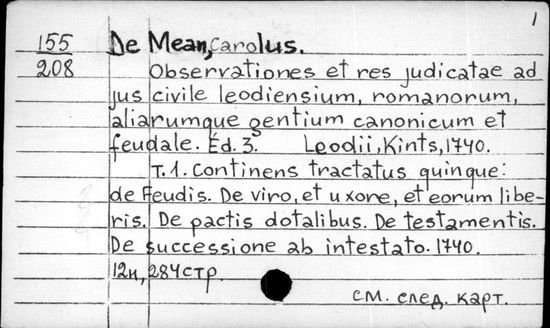 1
155
208
De Mean, Carolus.
Observationes et res judicatae ad
jus civile leodiensium, romanorum,
aliarumque gentium canonicum et
feudale. Éd. 3. Leodii, Kints, 1740.
T. 1. Continens tractatus quinque:
de Feudis. De viro, et uxore, et eorum libe-
ris. De pactis dotalibus. De testamentis.
De successione ab intestato. 1740.
12н, 284 стр.
см. след. карт.